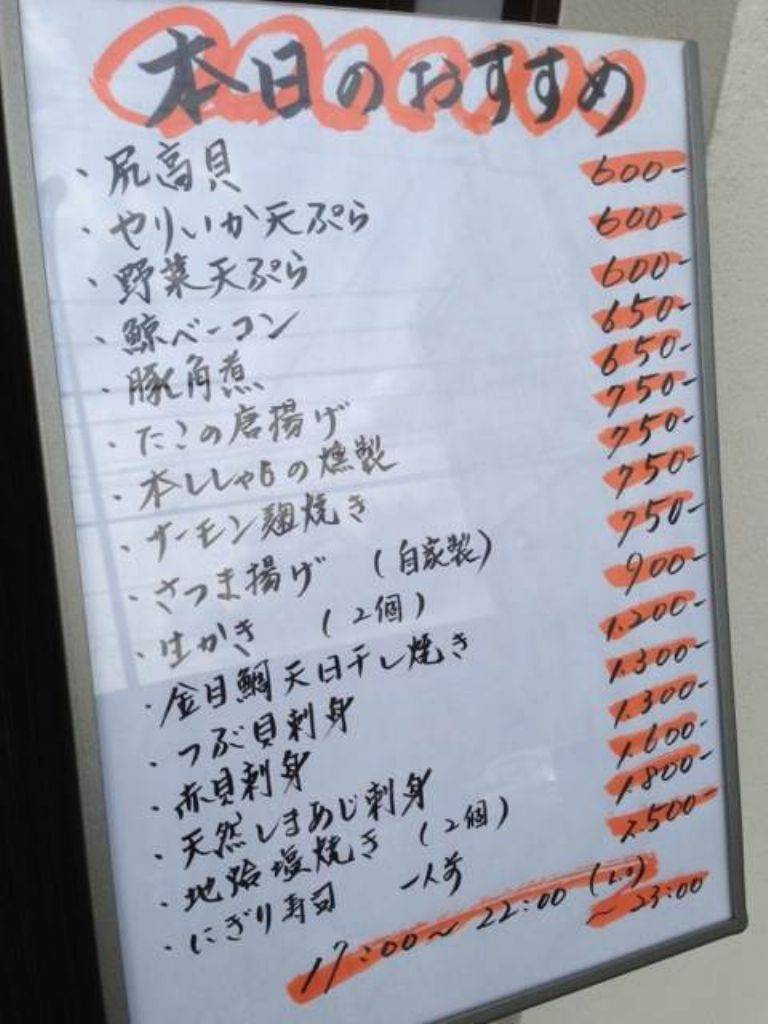 本日のおすすめ
・尻高貝 600-
・やりいか天ぷら 600-
・野菜天ぷら 600-
・鯨ベーコン 650-
・豚角煮 650-
・たこの唐揚げ 750-
・本ししゃもの燻製 750-
・サーモン麹焼き 750-
・さつま揚げ (自家製) 750-
・生かき (2個) 900-
・金目鯛天日干し焼き 1.200-
・つぶ貝刺身 1.300-
・赤貝刺身 1.300-
・天然しまあじ刺身 1.600-
・地蛤塩焼き (2個) 1.800-
・にぎり寿司 一人前 2.500-
17:00〜22:00 (L.O)
〜23:00